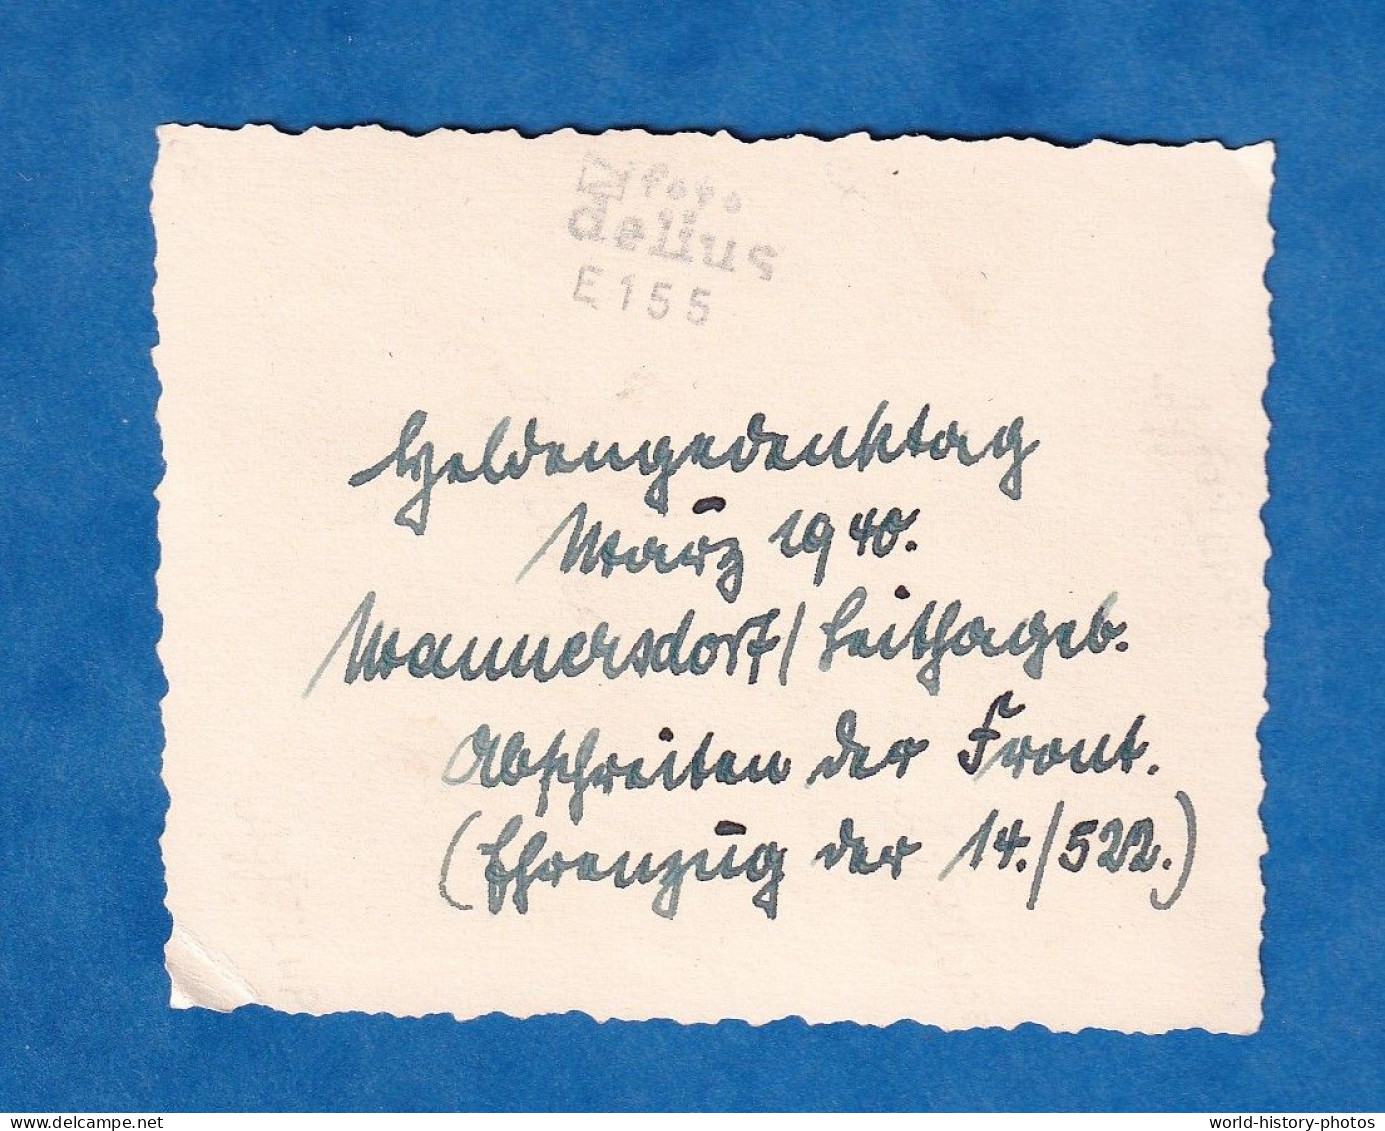 foto
delius
E155
Heldengedenktag
März 1940.
Mannersdorf/Leithageb.
Abschreiten der Front.
(Ehrenzug der 14./522.)
world-history-photos